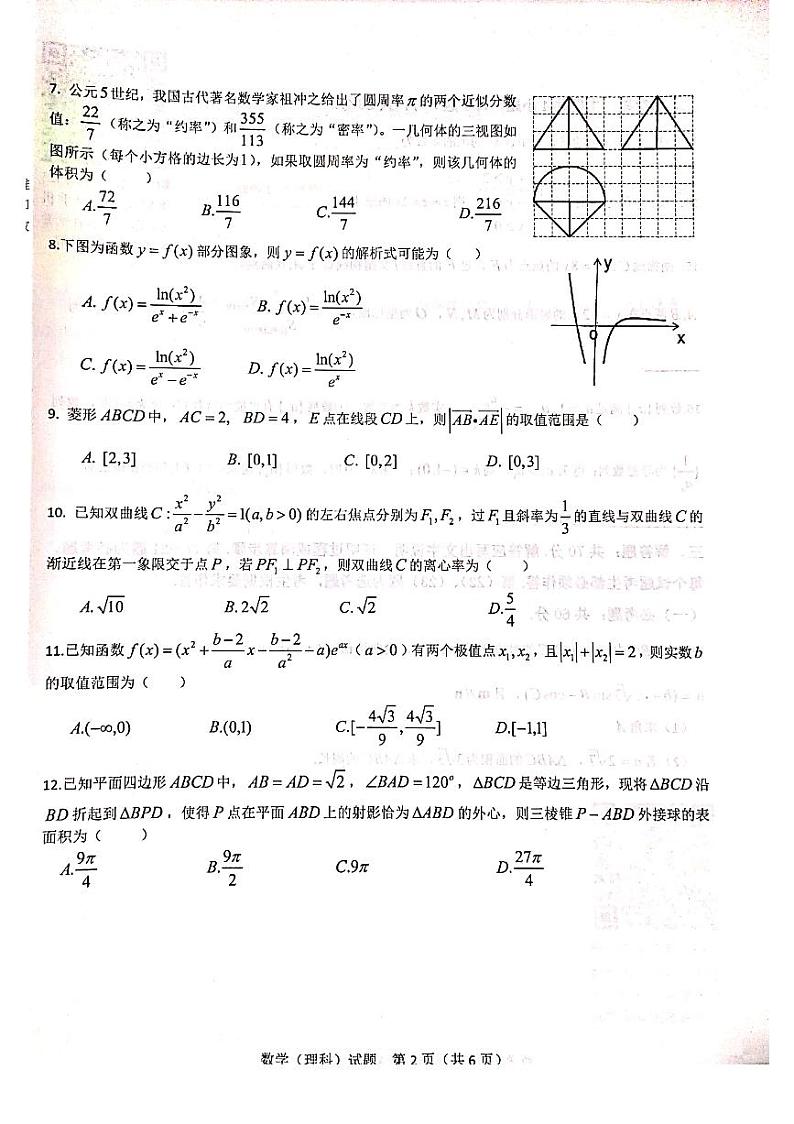 7. 公元5世纪，我国古代著名数学家祖冲之给出了圆周率π的两个近似分数
值：22/7（称之为“约率”）和355/113（称之为“密率”）。一几何体的三视图如
图所示（每个小方格的边长为1），如果取圆周率为“约率”，则该几何体的
体积为（ ）
A. 72/7 B. 116/7 C. 144/7 D. 216/7
8.下图为函数 y = f(x) 部分图象，则 y = f(x) 的解析式可能为（ ）
y
O
x
A. f(x) = ln(x²)/(eˣ + e⁻ˣ) B. f(x) = ln(x²)/e⁻ˣ
C. f(x) = ln(x²)/(eˣ − e⁻ˣ) D. f(x) = ln(x²)/eˣ
9. 菱形 ABCD 中，AC = 2, BD = 4，E 点在线段 CD 上，则 |AB•AE| 的取值范围是（ ）
A. [2,3] B. [0,1] C. [0,2] D. [0,3]
10. 已知双曲线 C : x²/a² − y²/b² = 1(a,b > 0) 的左右焦点分别为 F₁, F₂，过 F₁ 且斜率为 1/3 的直线与双曲线 C 的
渐近线在第一象限交于点 P，若 PF₁ ⊥ PF₂，则双曲线 C 的离心率为（ ）
A. √10 B. 2√2 C. √2 D. 5/4
11.已知函数 f(x) = (x² + (b−2)/a x − (b−2)/a² − a)eᵃˣ（a > 0）有两个极值点 x₁, x₂，且 |x₁| + |x₂| = 2，则实数 b
的取值范围为（ ）
A.(−∞,0) B.(0,1) C.[−4√3/9, 4√3/9] D.[−1,1]
12.已知平面四边形 ABCD 中，AB = AD = √2，∠BAD = 120°，ΔBCD 是等边三角形，现将 ΔBCD 沿
BD 折起到 ΔBPD，使得 P 点在平面 ABD 上的射影恰为 ΔABD 的外心，则三棱锥 P − ABD 外接球的表
面积为（ ）
A. 9π/4 B. 9π/2 C.9π D. 27π/4
数学（理科）试题 第 2 页（共 6 页）